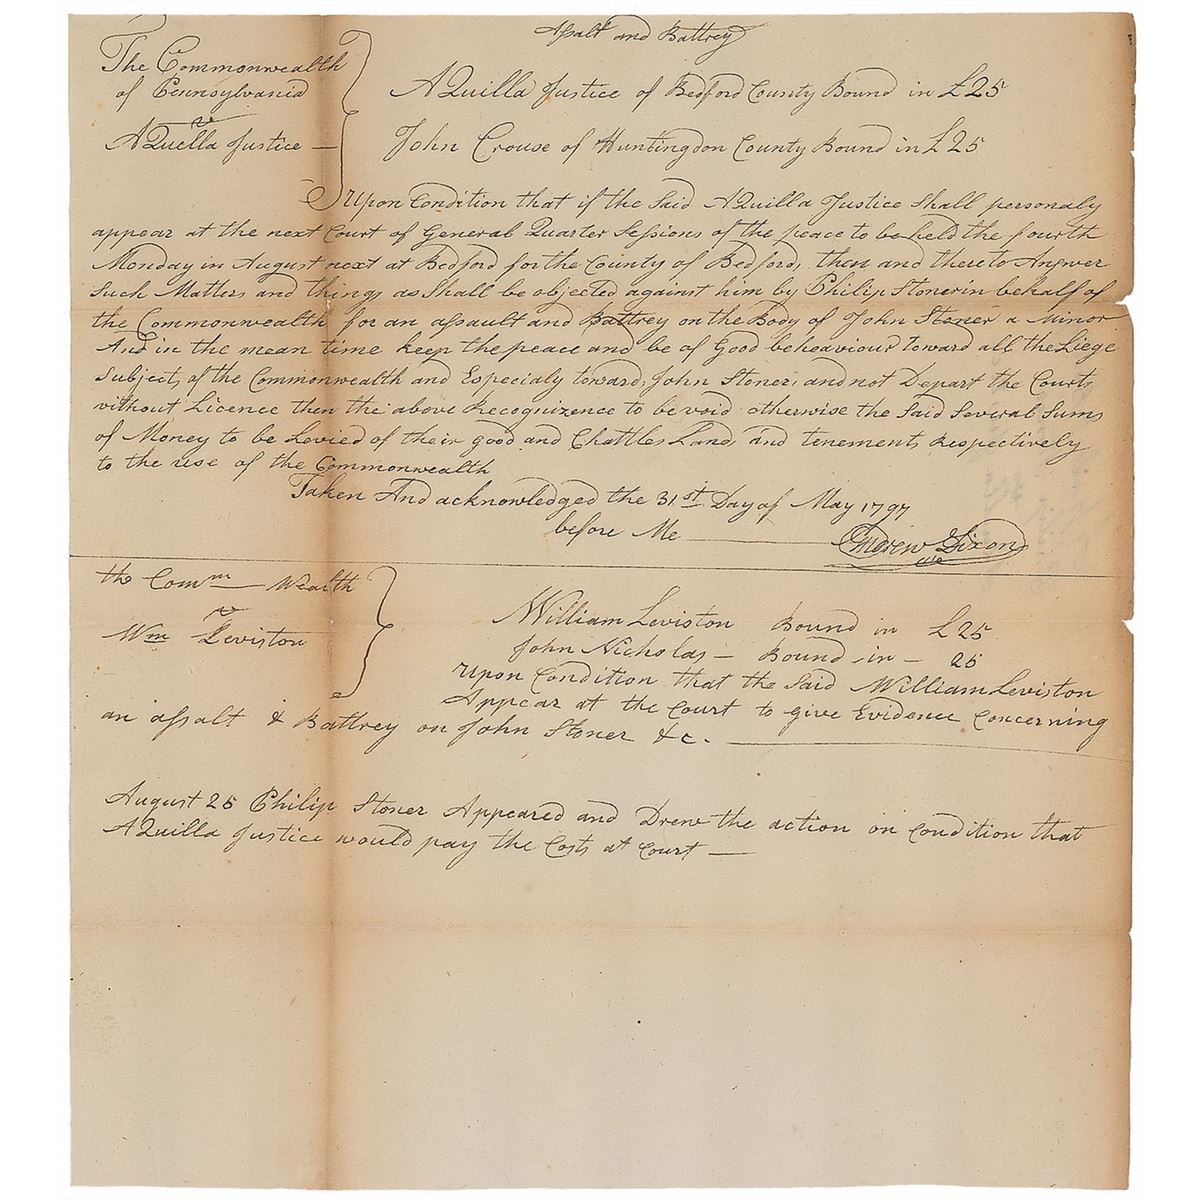 Assalt and Battrey
The Commonwealth
of Pennsylvania
vs
AQuella Justice
AQuilla Justice of Bedford County Bound in £25
John Crouse of Huntingdon County Bound in £25
Upon Condition that if the Said AQuilla Justice Shall personaly
appear at the next Court of General Quarter Sessions of the peace to be held the fourth
Monday in August next at Bedford for the County of Bedford, then and there to Answer
Such Matters and things as Shall be objected against him by Philip Stoner in behalf of
the Commonwealth for an assault and Battrey on the Body of John Stoner a Minor
And in the mean time keep the peace and be of Good behoaviour Toward all the Liege
Subjects of the Commonwealth and Especialy towards John Stoner, and not Depart the Courts
without Licence then the above Recognizence to be void otherwise the Said Several Sums
of Money to be Levied of their good and Chattles Lands and tenements Respectively
to the use of the Commonwealth
Taken And acknowledged the 31st Day of May 1797
before Me Andrew Dixon
the Comm Wealth
vs
Wm Leviston
William Leviston Bound in £25
John Nicholas – Bound in – 25
Upon Condition that the Said William Leviston
Appear at the Court to Give Evidence Concerning
an assalt & Battrey on John Stoner &c.
August 25 Philip Stoner Appeared and Drew the action on Condition that
AQuilla Justice would pay the Costs at Court —